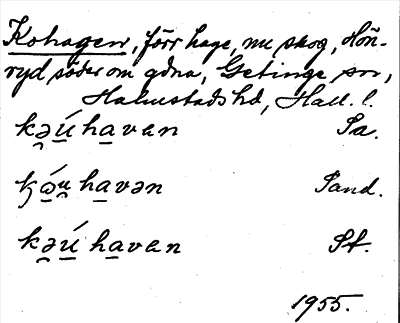 Kohagen, förr hage, nu skog, Hön-
ryd söder om gdna, Getinge sn,
Halmstads hd, Hall. l.
kə̯ú̱ ha̱van Sa.
ka̯ú̯ ha̱vən Sand.
kə̯ú̱ ha̱van St.
1955.